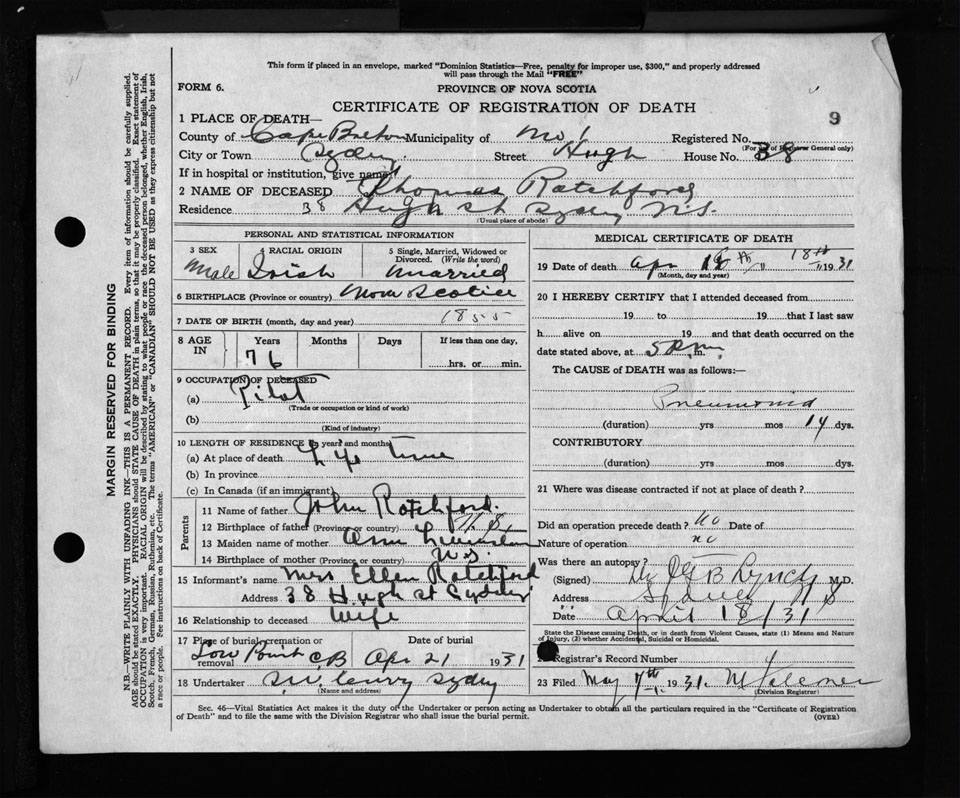 This form if placed in an envelope, marked "Dominion Statistics—Free, penalty for improper use, $300," and properly addressed
will pass through the Mail "FREE"
FORM 6.
PROVINCE OF NOVA SCOTIA
CERTIFICATE OF REGISTRATION OF DEATH
9
1 PLACE OF DEATH—
County of Cape Breton Municipality of No 1 Registered No.
(For use of Registrar General only)
City or Town Sydney Street Hugh House No. 38
If in hospital or institution, give name
2 NAME OF DECEASED Thomas Ratchford
Residence 38 Hugh St Sydney N.S.
(Usual place of abode)
PERSONAL AND STATISTICAL INFORMATION
3 SEX 4 RACIAL ORIGIN 5 Single, Married, Widowed or
Divorced. (Write the word)
Male Irish Married
6 BIRTHPLACE (Province or country) Nova Scotia
7 DATE OF BIRTH (month, day and year) 1855
8 AGE IN Years Months Days If less than one day,
76 hrs. or min.
9 OCCUPATION OF DECEASED
(a) Pilot
(Trade or occupation or kind of work)
(b)
(Kind of industry)
10 LENGTH OF RESIDENCE (in years and months)
(a) At place of death Life time
(b) In province
(c) In Canada (if an immigrant)
Parents
11 Name of father John Ratchford
12 Birthplace of father (Province or country) N.S.
13 Maiden name of mother Ann
14 Birthplace of mother (Province or country) N.S.
15 Informant's name Mrs Ellen Ratchford
Address 38 Hugh St Sydney
16 Relationship to deceased Wife
17 Place of burial, cremation or
removal Low Point CB
Date of burial
Apr 21 1931
18 Undertaker Sydney
(Name and address)
MEDICAL CERTIFICATE OF DEATH
19 Date of death Apr 18th 18th 1931
(Month, day and year)
20 I HEREBY CERTIFY that I attended deceased from
19 to 19 that I last saw
h alive on 19 and that death occurred on the
date stated above, at 5 P.m. m.
The CAUSE of DEATH was as follows:—
Pneumonia
(duration) yrs mos 14 dys.
CONTRIBUTORY
(duration) yrs mos dys.
21 Where was disease contracted if not at place of death?
Did an operation precede death? No Date of
Nature of operation no
Was there an autopsy?
(Signed) Lynch M.D.
Address Sydney N S
Date April 18/31
State the Disease causing Death, or in death from Violent Causes, state (1) Means and Nature
of Injury, (2) whether Accidental, Suicidal or Homicidal.
Registrar's Record Number
23 Filed May 7th 1931.
(Division Registrar)
Sec. 46—Vital Statistics Act makes it the duty of the Undertaker or person acting as Undertaker to obtain all the particulars required in the "Certificate of Registration
of Death" and to file the same with the Division Registrar who shall issue the burial permit.
(OVER)
MARGIN RESERVED FOR BINDING
N.B.—WRITE PLAINLY WITH UNFADING INK—THIS IS A PERMANENT RECORD. Every item of information should be carefully supplied.
AGE should be stated EXACTLY. PHYSICIANS should STATE CAUSE OF DEATH in plain terms, so that it may be properly classified. Exact statement of
OCCUPATION is very important. RACIAL ORIGIN will be described by stating to what people or race the deceased person belonged, whether English, Irish,
Scotch, French, German, Russian, Ruthenian, etc. The terms "AMERICAN" or "CANADIAN" SHOULD NOT BE USED as they express citizenship but not
a race or people. Fee instructions on back of Certificate.